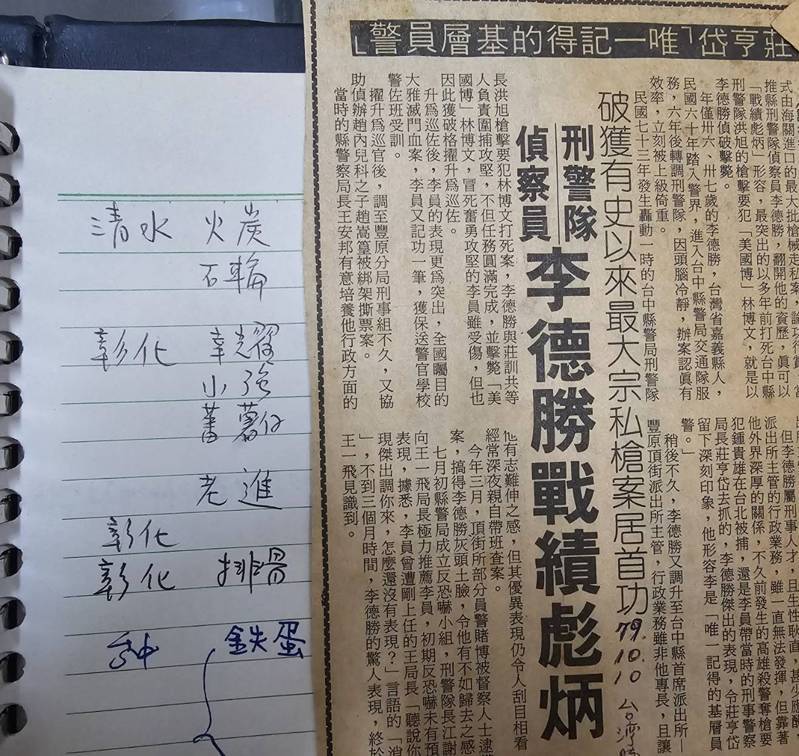 清水 火炭
石輪
彰化
小強
蕃薯仔
老進
彰化
彰化 排骨
鉄蛋
莊亨岱「唯一記得的基層員警」
破獲有史以來最大宗私槍案居首功
刑警隊
偵察員
李德勝戰績彪炳
79.10.10 台灣時
式由海關進口的最大批槍械走私案，論功行賞，當
推縣刑警隊偵察員李德勝，翻開他的資歷，真可以
「戰績彪炳」形容，最突出的以多年前打死台中縣
刑警隊洪旭的槍擊要犯「美國博」林博文，就是以
李德勝偵破擊斃。
年僅卅六、卅七歲的李德勝，台灣省嘉義縣人，
民國六十年踏入警界，進入台中縣警局交通隊服
務，六年後轉調刑警隊，因頭腦冷靜，辦案認真有
效率，立刻被上級倚重。
民國七十三年發生轟動一時的台中縣警局刑警隊
長洪旭槍擊要犯林博文打死案，李德勝與莊訓共等
人負責圍捕攻堅，不但任務圓滿完成，並擊斃「美
國博」林博文，冒死奮勇攻堅的李員雖受傷，但也
因此獲破格擢升爲巡佐。
升爲巡佐後，李員的表現更爲突出，全國矚目的
大雅滅門血案，李員又記功一筆，獲保送警官學校
警佐班受訓。
擢升爲巡官後，調至豐原分局刑事組不久，又協
助偵辦趙內兒科之子趙嵩篁被綁架撕票案。
當時的縣警察局長王安邦有意培養他行政方面的
但李德勝屬刑事人才，且生性耿直，甚少應酬，
派出所主管的行政業務，雖一直無法發揮，但靠著
他外界深厚的關係，不久前發生的高雄殺警奪槍要
犯鍾貴雄在台北被捕，還是李員帶當時的刑事警察
局長莊亨岱去抓的，李德勝傑出的表現，令莊亨岱
留下深刻印象，他形容李是「唯一記得的基層員
警」。
稍後不久，李德勝又調升至台中縣首席派出所
豐原頂街派出所主管，行政業務雖非他專長，且讓
他有志難伸之感，但其優異表現仍令人刮目相看
經常深夜親自帶班查案。
今年三月，頂街所部分員警賭博被督察人士逮
案，搞得李德勝灰頭土臉，令他有不如歸去之感
七月初縣警局成立反恐嚇小組，刑警隊長江謝
向王一飛局長極力推薦李員，初期反恐嚇未有預
表現，據悉，李員曾遭剛上任的王局長「聽說你
現傑出調你來，怎麼還沒有表現？」言語的「消
」，不到三個月時間，李德勝的驚人表現，終於
王一飛見識到。